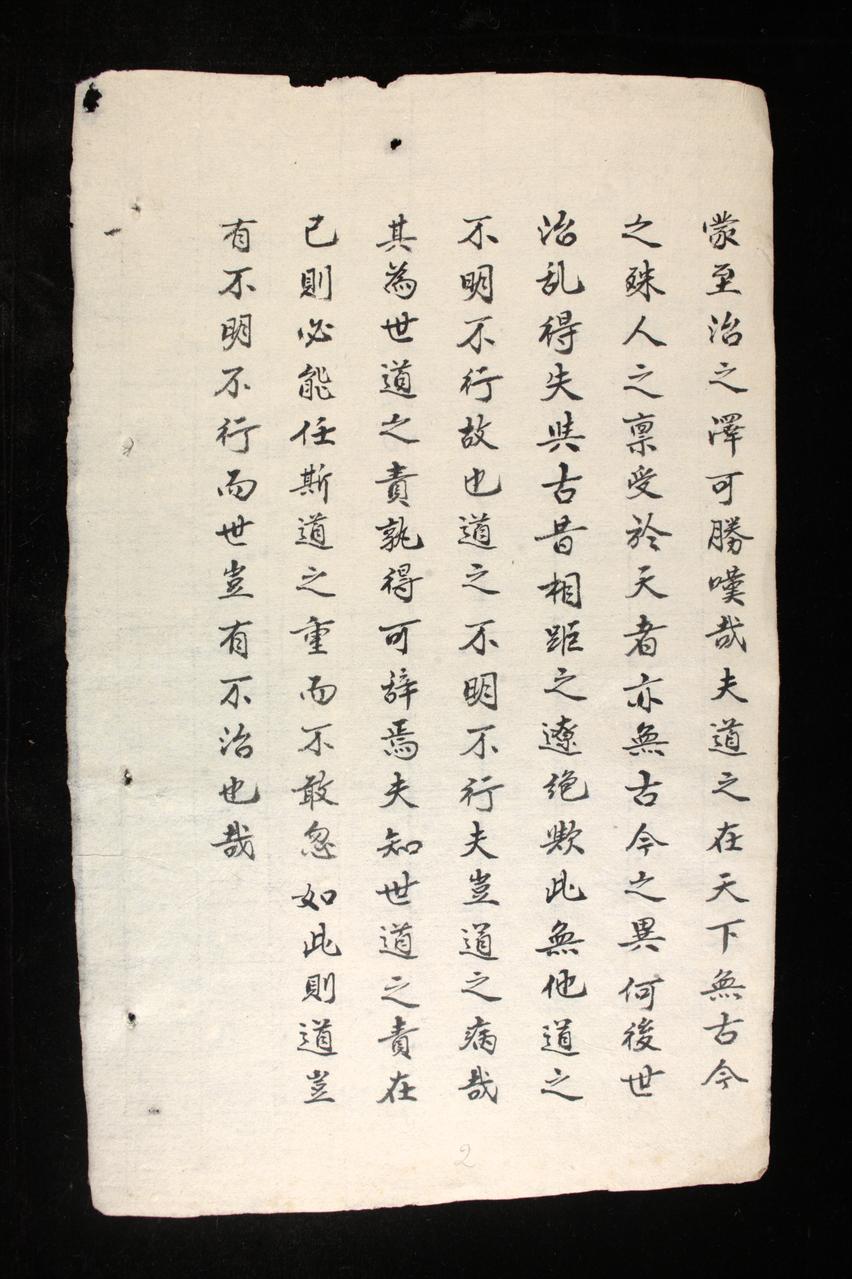 蒙至治之澤可勝嘆哉夫道之在天下無古今
之殊人之禀受於天者亦無古今之異何後世
治乱得失與古昔相距之遼絶歟此無他道之
不明不行故也道之不明不行夫豈道之病哉
其為世道之責孰得可辞焉夫知世道之責在
己則必能任斯道之重而不敢忽如此則道豈
有不明不行而世豈有不治也哉
2